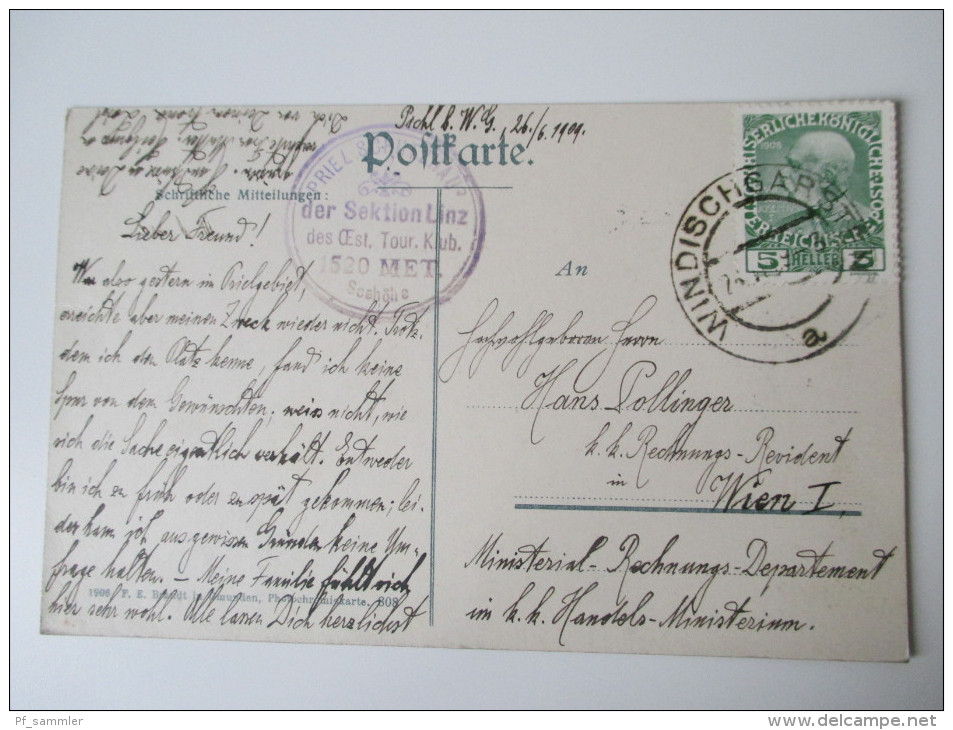 Pichl b. W. G. 26./6. 1909.
Postkarte.
Schriftliche Mitteilungen:
der Sektion Linz
des Œst. Tour. Klub.
1520 MET.
Seehöhe
WINDISCHGARSTEN
a
KAISERLICHE KÖNIGLICHE POST
1908
5 HELLER 5
Lieber Freund!
War also gestern im Prielgebiet,
erreichte aber meinen Zweck wieder nicht. Trotz-
dem ich den Platz kenne, fand ich keine
Spur von dem Gewünschten; weiss nicht, wie
sich die Sache eigentlich verhält. Entweder
bin ich zu früh oder zu spät gekommen; lei-
der kann ich aus gewissen Gründen keine Um-
frage halten. – Meine Familie fühlt sich
hier sehr wohl. Alle lassen Dich herzlichst
1906 F. E. Brandt in Gmunden, Photochromiekarte. 808
An
Hochwohlgeboren Herrn
Hans Pollinger
k. k. Rechnungs-Revident
in
Wien I,
Ministerial-Rechnungs-Departement
im k. k. Handels-Ministerium.
Pf_sammler
www.delcampe.net